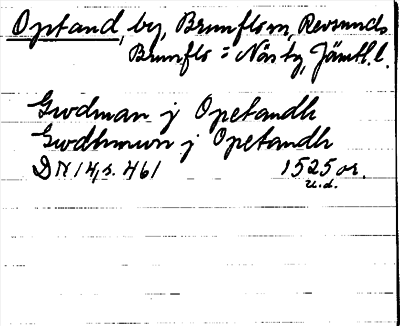 Optand, by, Brunflo sn, Revsunds
Brunflo = Näs tg, Jämtl. l.
Gwdman j Opetandh
Gwdhmwn j Opetandh
DN 14, s. 461 1525 or.
u.d.